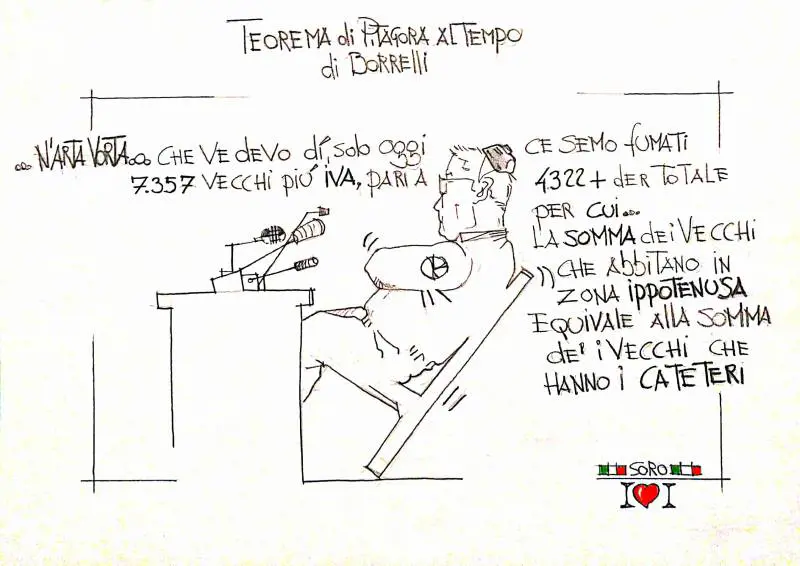 TEOREMA di PITAGORA AL TEMPO
di BORRELLI
... N'ARTA VORTA... CHE VE dEVO dí, solo oggi
7.357 VECCHI PIÚ IVA, PARI A
CE SEMO fUMATI
4322 + dER TOTALE
PER CUI...
LA SOMMA dEi VECCHI
CHE AbbITANO IN
ZONA IPPOTENUSA
EQUIVALE ALLA SOMMA
dE' i VECCHI CHE
HANNO i CATETERI
SORO
I ❤ I